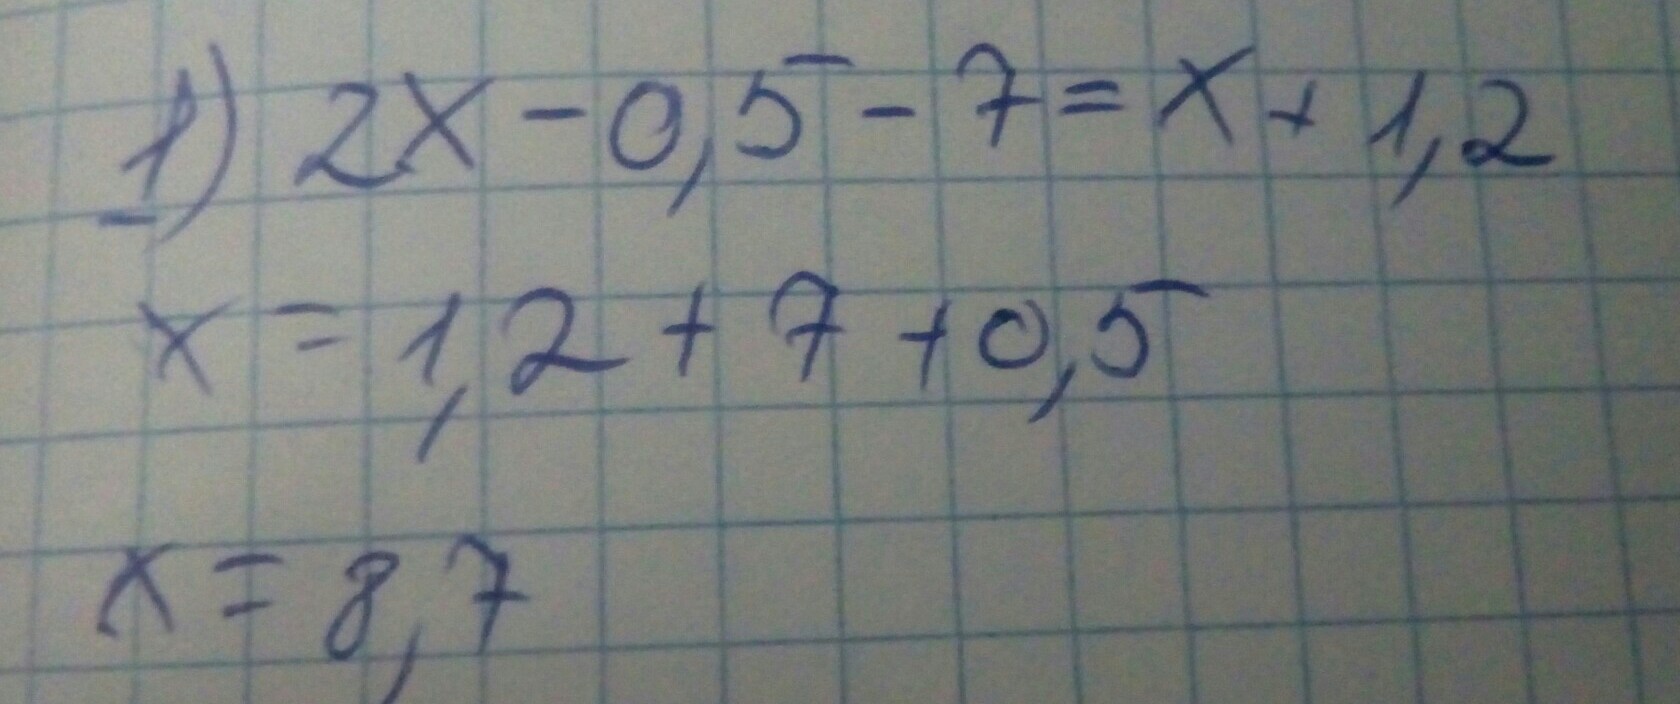 1) 2x - 0,5 - 7 = x + 1,2
x = 1,2 + 7 + 0,5
x = 8,7